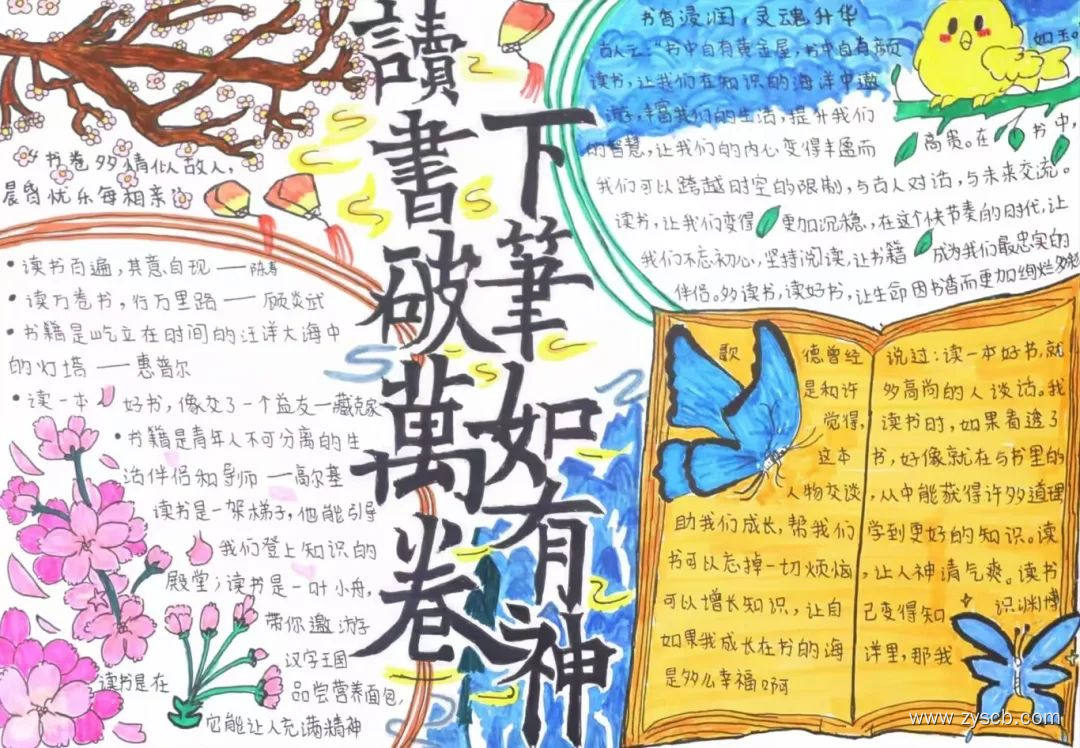 讀書破萬卷
下筆如有神
“书卷多情似故人，
晨昏忧乐每相亲
• 读书百遍，其意自现——陈寿
• 读万卷书，行万里路——顾炎武
• 书籍是屹立在时间的汪洋大海中
的灯塔——惠普尔
• 读一本好书，像交了一个益友—藏克家
• 书籍是青年人不可分离的生
活伴侣和导师—高尔基
读书是一架梯子，他能引导
我们登上知识的
殿堂；读书是一叶小舟，
带你遨游于
汉字王国
读书是在品尝营养面包，
它能让人充满精神
书香浸润，灵魂升华
古人云：“书中自有黄金屋，书中自有颜如玉。
读书，让我们在知识的海洋中遨
游，丰富我们的生活，提升我们
的智慧，让我们的内心变得丰盈而高贵。在书中，
我们可以跨越时空的限制，与古人对话，与未来交流。
读书，让我们变得更加沉稳，在这个快节奏的时代，让
我们不忘初心，坚持阅读，让书籍成为我们最忠实的
伴侣。多读书，读好书，让生命因书香而更加绚烂多彩
歌德曾经说过：读一本好书，就
是和许多高尚的人谈话。我
觉得，读书时，如果看透了
这本书，好像就在与书里的
人物交谈，从中能获得许多道理
助我们成长，帮我们学到更好的知识。读
书可以忘掉一切烦恼，让人神清气爽。读书
可以增长知识，让自己变得知识渊博
如果我成长在书的海洋里，那我
是多么幸福啊
www.zyscb.com